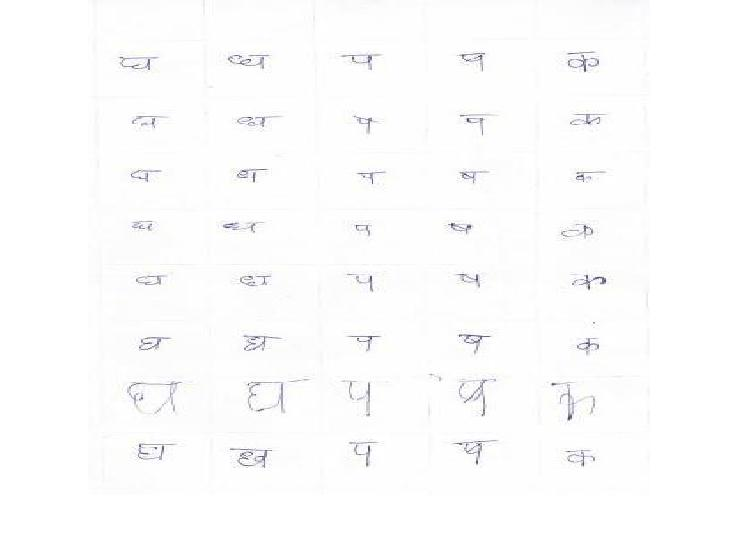 घ ध प ष क
घ ध प ष क
घ ध प ष क
घ ध प ष क
घ ध प ष क
घ ध प ष क
घ घ प ष क
घ ध प ष क